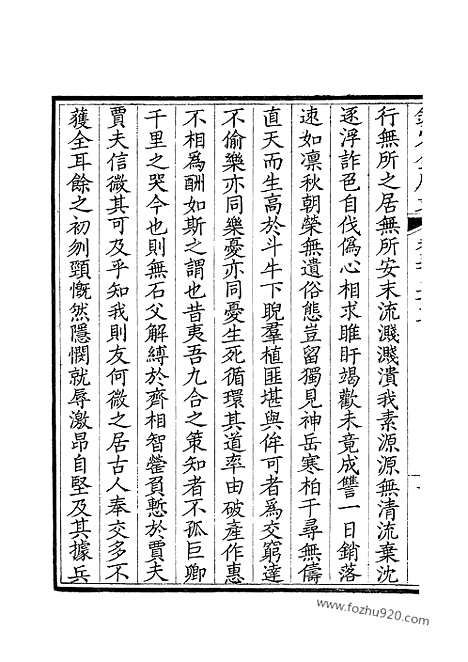 行無所之居無所安末流濺濺潰我素源源無清流棄沈
逐浮詐色自伐僞心相求睢盱竭歡未竟成讐一日銷落
速如凛秋朝榮無遺俗態豈留獨見神岳寒柏千尋無儔
直天而生高於斗牛下睨羣植匪堪與侔可者爲交窮達
不偷樂亦同樂憂亦同憂生死循環其道率由破產作惠
不相爲酬如斯之謂也昔夷吾九合之策知者不孤巨卿
千里之哭今也則無石父解縛於齊相智罃負慙於賈夫
賈夫信微其可及乎知我則友何微之居古人奉交多不
獲全耳餘之初刎頸慨然隱憫就辱激昂自堅及其據兵
www.fozhu920.com